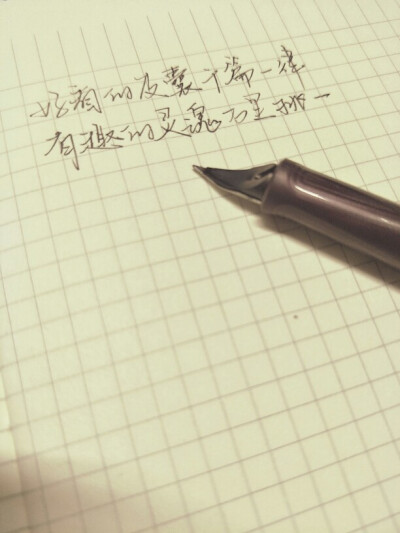 好看的皮囊千篇一律
有趣的灵魂百里挑一